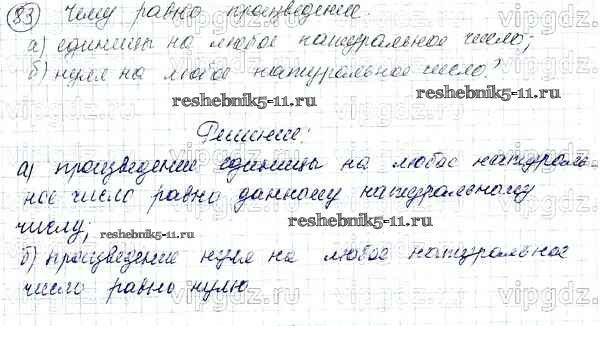 83 Чему равно произведение:
а) единицы на любое натуральное число;
б) нуля на любое натуральное число?
reshebnik5-11.ru
Решение:
а) произведение единицы на любое натураль-
ное число равно данному натуральному
числу;
reshebnik5-11.ru
б) произведение нуля на любое натуральное
число равно нулю
vipgdz.com